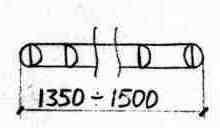 1350÷1500